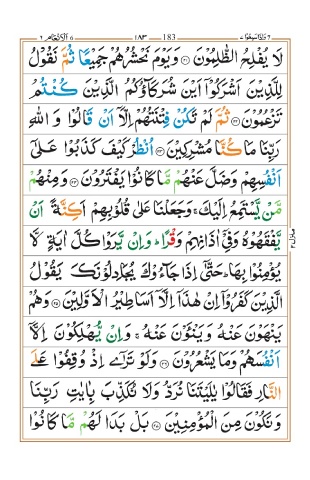 وَاِذَا سَمِعُوْا ٧ 183 ١٨٣ اَلْاَنْعَام ٦
لَا يُفْلِحُ الظّٰلِمُوْنَ ﴿۲۱﴾ وَيَوْمَ نَحْشُرُهُمْ جَمِيْعًا ثُمَّ نَقُوْلُ
لِلَّذِيْنَ اَشْرَكُوْۤا اَيْنَ شُرَكَآؤُكُمُ الَّذِيْنَ كُنْتُمْ
تَزْعُمُوْنَ ﴿۲۲﴾ ثُمَّ لَمْ تَكُنْ فِتْنَتُهُمْ اِلَّاۤ اَنْ قَالُوْا وَاللّٰهِ
رَبِّنَا مَا كُنَّا مُشْرِكِيْنَ ﴿۲۳﴾ اُنْظُرْ كَيْفَ كَذَبُوْا عَلٰۤى
اَنْفُسِهِمْ وَضَلَّ عَنْهُمْ مَّا كَانُوْا يَفْتَرُوْنَ ﴿۲۴﴾ وَمِنْهُمْ
مَّنْ يَّسْتَمِعُ اِلَيْكَ ۚ وَجَعَلْنَا عَلٰى قُلُوْبِهِمْ اَكِنَّةً اَنْ
يَّفْقَهُوْهُ وَفِيْۤ اٰذَانِهِمْ وَقْرًا ؕ وَاِنْ يَّرَوْا كُلَّ اٰيَةٍ لَّا
يُؤْمِنُوْا بِهَا ؕ حَتّٰۤى اِذَا جَآءُوْكَ يُجَادِلُوْنَكَ يَقُوْلُ
الَّذِيْنَ كَفَرُوْۤا اِنْ هٰذَاۤ اِلَّاۤ اَسَاطِيْرُ الْاَوَّلِيْنَ ﴿۲۵﴾ وَهُمْ
يَنْهَوْنَ عَنْهُ وَيَنْئَوْنَ عَنْهُ ۚ وَاِنْ يُّهْلِكُوْنَ اِلَّاۤ
اَنْفُسَهُمْ وَمَا يَشْعُرُوْنَ ﴿۲۶﴾ وَلَوْ تَرٰۤى اِذْ وُقِفُوْا عَلَى
النَّارِ فَقَالُوْا يٰلَيْتَنَا نُرَدُّ وَلَا نُكَذِّبَ بِاٰيٰتِ رَبِّنَا
وَنَكُوْنَ مِنَ الْمُؤْمِنِيْنَ ﴿۲۷﴾ بَلْ بَدَا لَهُمْ مَّا كَانُوْا
منزل ۲